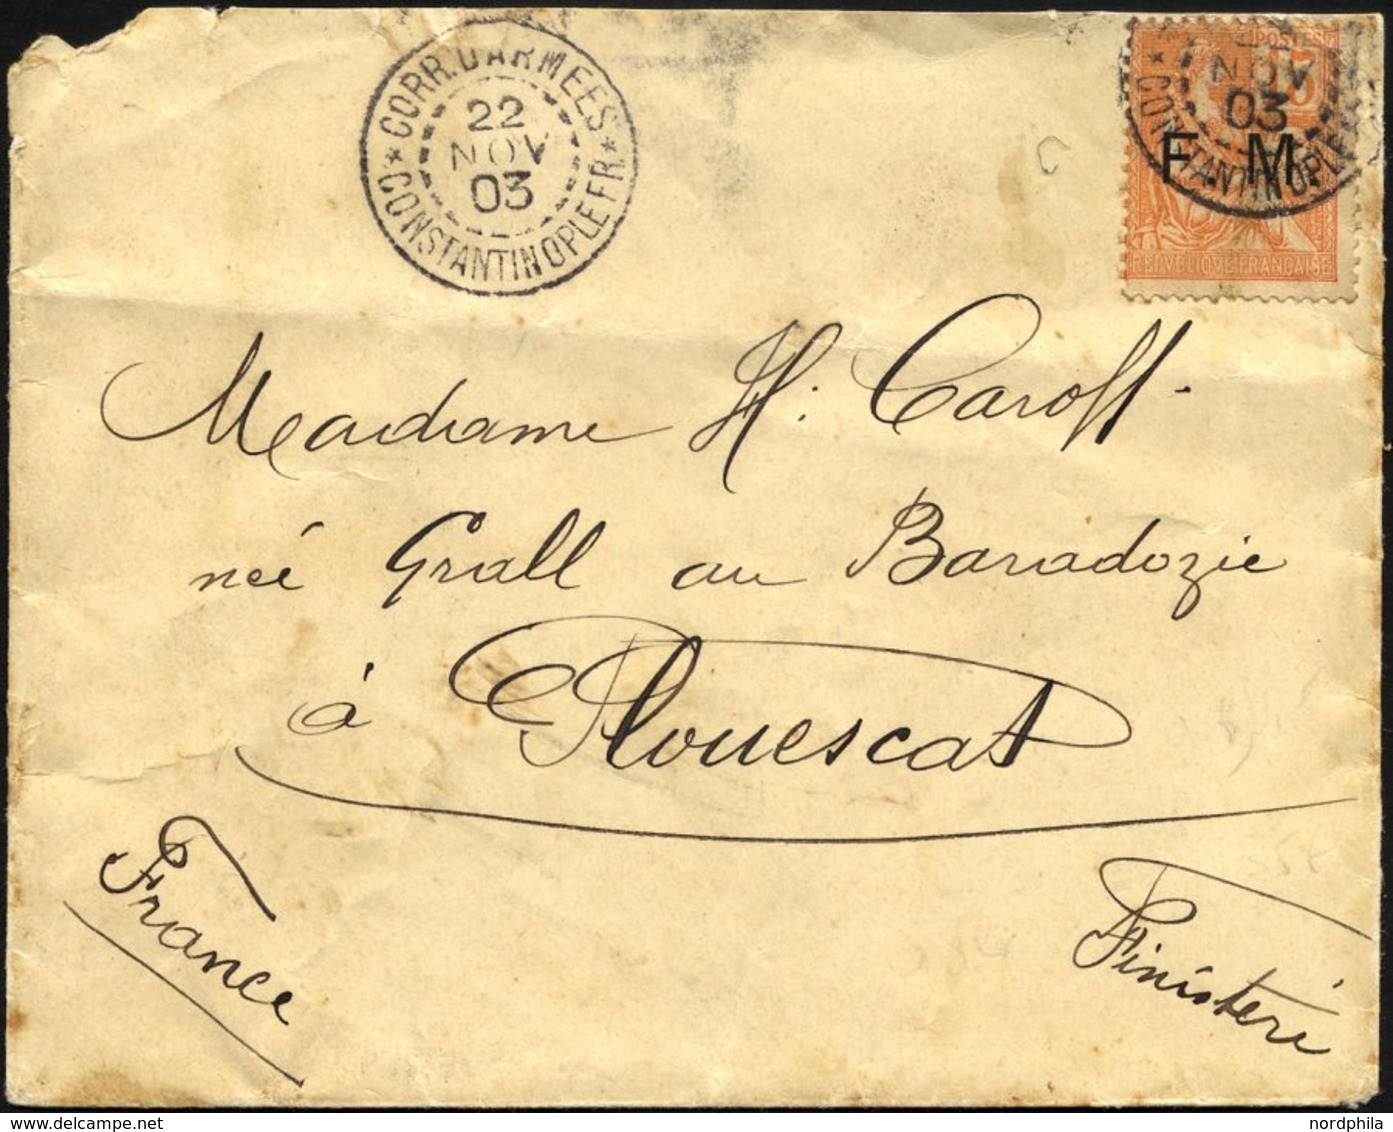 CORR. D'ARMEES
22
NOV
03
* CONSTANTINOPLE FR *
POSTES
15
NOV
03
* CONSTANTINOPLE FR
F. M.
REPVBLIQVE FRANÇAISE
Madame H. Caroff
née Grall au Baradozic
à Plouescat
France
Finistère
nordphila